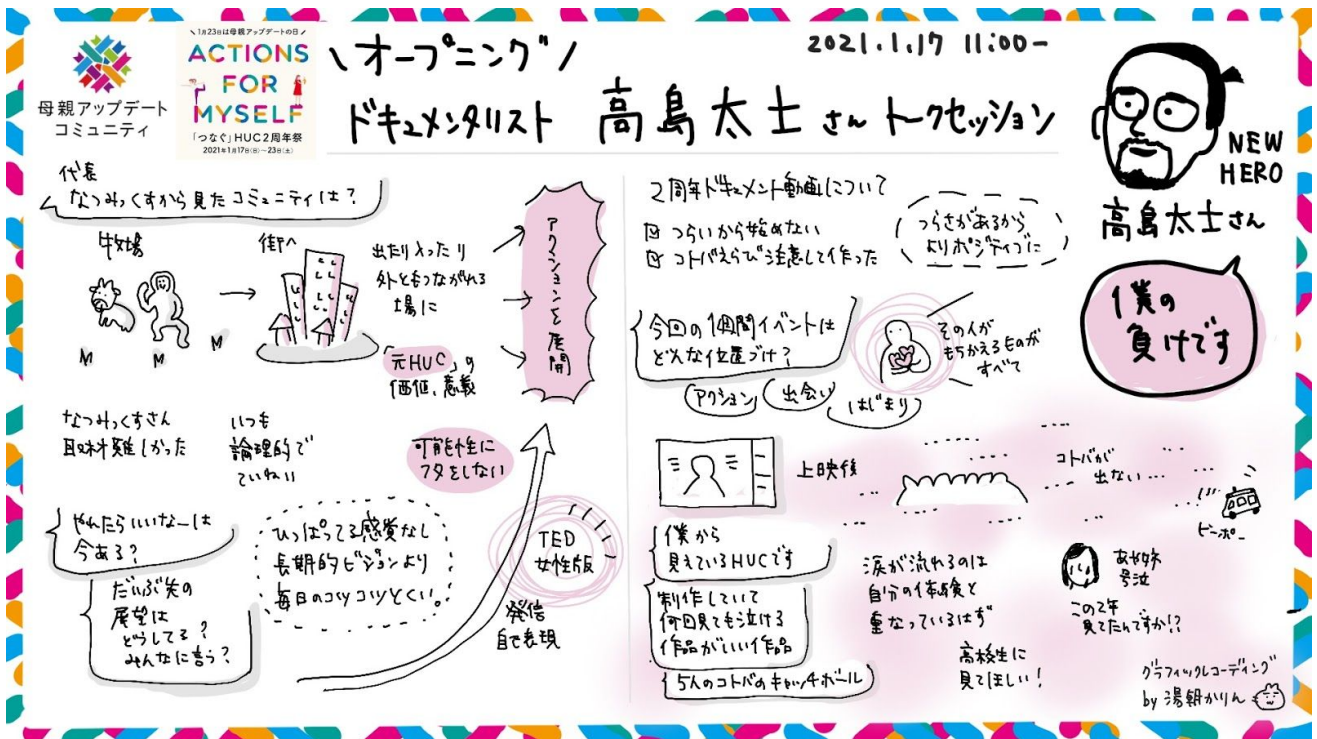 母親アップデート
コミュニティ
\ 1月23日は母親アップデートの日 /
ACTIONS
FOR
MYSELF
「つなぐ」HUC2周年祭
2021年1月17日(日)〜23日(土)
\オープニング/
2021.1.17 11:00-
ドキュメンタリスト 高島太士さん トークセッション
NEW
HERO
高島太士さん
僕の
負けです
代表
なつみっくすから見たコミュニティは?
牧場
街へ
出たり入ったり
外ともつながれる
場に
「元HUC」の
価値、意義
アクションを展開
なつみっくすさん
取材難しかった
いつも
論理的で
ていねい
可能性に
フタをしない
やれたらいいなーは
今ある?
だいぶ先の
展望は
どうしてる?
みんなに言う?
ひっぱってる感覚なし
長期的ビジョンより
毎日のコツコツとくい。
TED
女性版
発信
自己表現
2周年ドキュメント動画について
つらいから始めない
コトバえらび注意して作った
つらさがあるから
よりポジティブに
今回の1週間イベントは
どんな位置づけ?
アクション
出会い
はじまり
その人が
もちかえるものが
すべて
上映後
コトバが
出ない…
ピーポー
僕から
見えているHUCです
制作していて
何回見ても泣ける
作品がいい作品
5人のコトバのキャッチボール
涙が流れるのは
自分の体験と
重なっているはず
高校生に
見てほしい!
あや姉
号泣
この2年
見てたんですか!?
グラフィックレコーディング
by 湯朝かりん